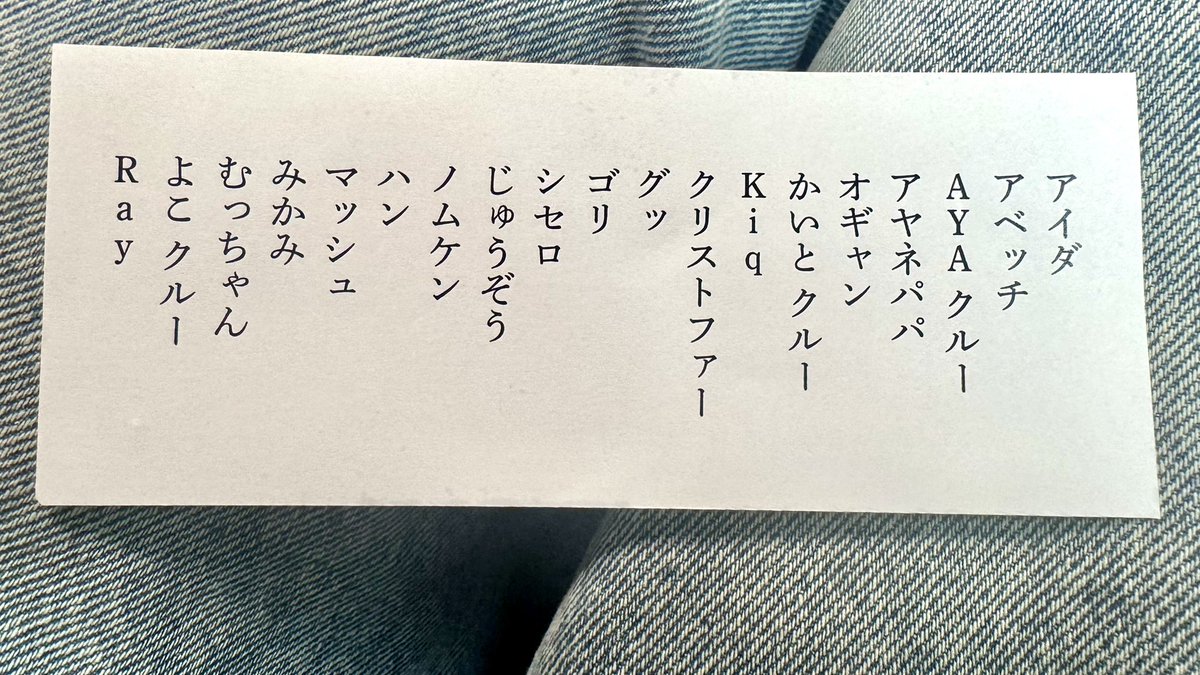 アイダ
アベッチ
AYA クルー
アヤネパパ
オギャン
かいと クルー
Kiq
クリストファー
グッ
ゴリ
シセロ
じゅうぞう
ノムケン
ハン
マッシュ
みかみ
むっちゃん
よこ クルー
Ray